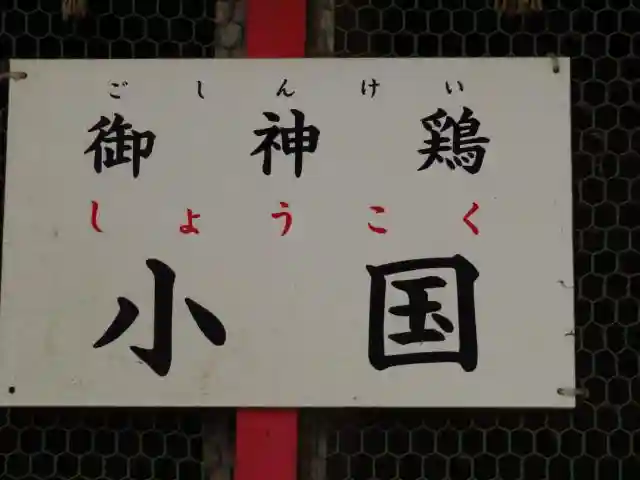 ごしんけい
御神鶏
しょうこく
小国